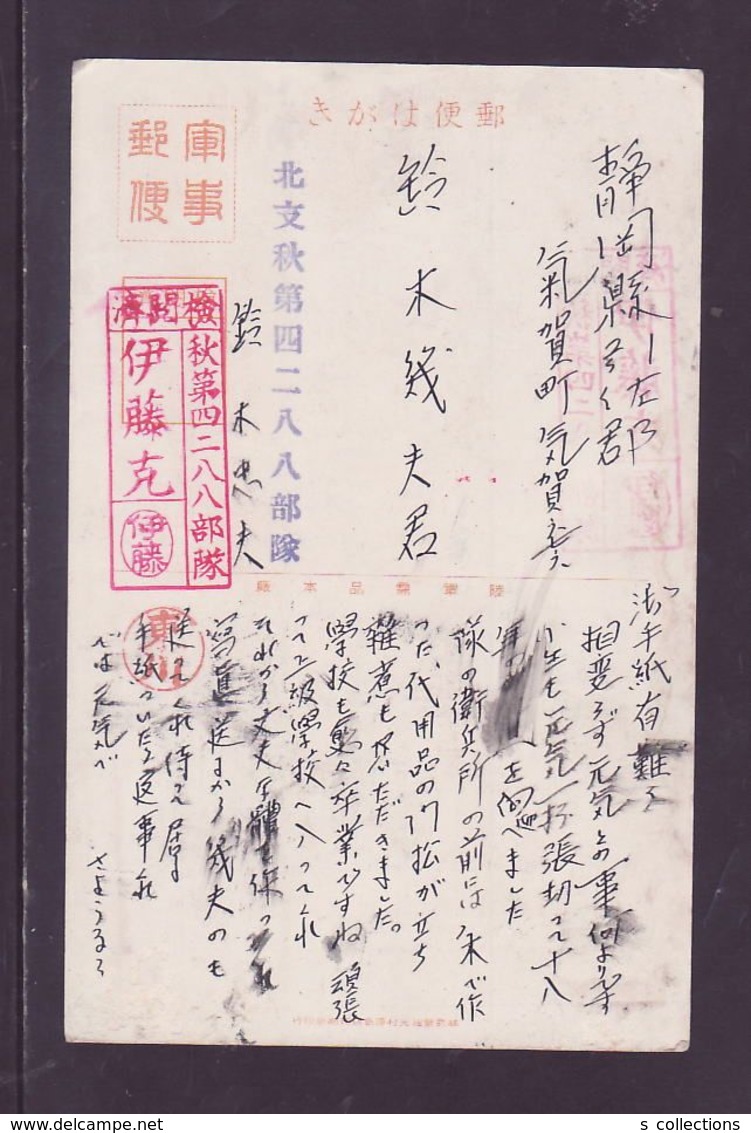 郵便はがき
軍事
郵便
靜岡縣引佐郡
氣賀町気賀
鈴木幾夫君
北支秋第四二八八部隊
鈴木忠夫
検閲済
秋第四二八八部隊
伊藤克
伊藤
陸軍需品本廠
御手紙有難う
相変らず元気との事何よりです
小生も元気一杯張切って十八
年の を迎へました
隊の衛兵所の前には 木で作
った代用品の門松が立ち
雑煮も いただきました。
學校も愈々卒業ですね 頑張
って上級學校へ入ってくれ
それから丈夫な體を保つ
寫眞送るから幾夫のも
送ってくれ待って居る
手紙ついたら返事くれ
では元気で
さようなら
s collections